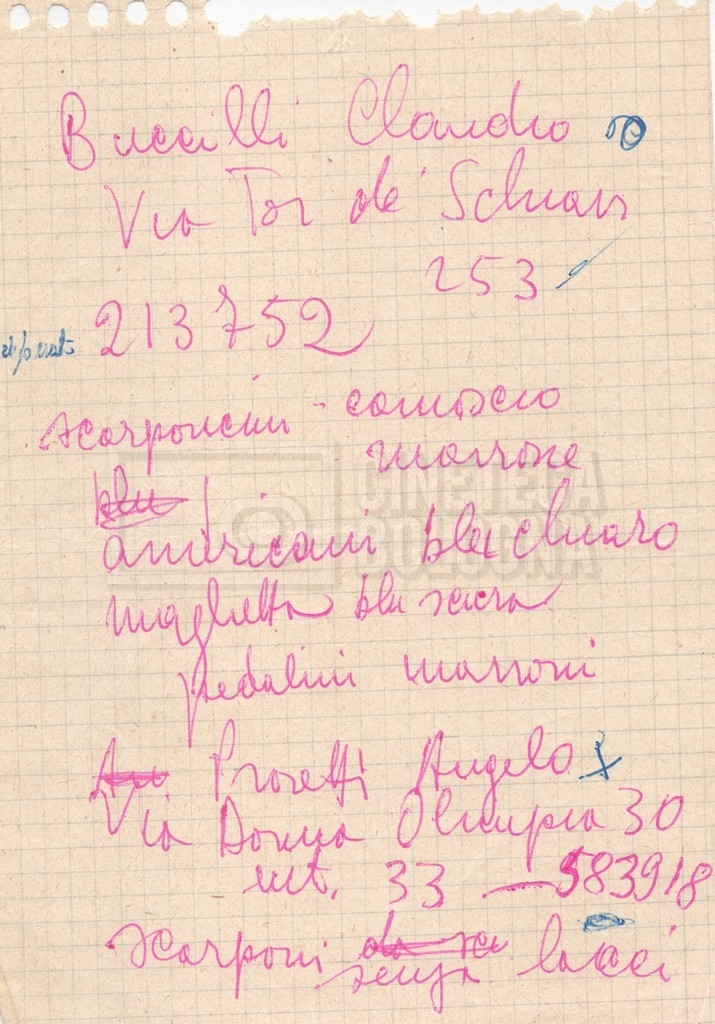 Buccilli Claudio
Via Tor de' Schiavi
253
213752
scarponcini - camoscio
marrone
blu
americani blu chiaro
maglietta blu scura
pedalini marroni
Proietti Angelo
Via Donna Olimpia 30
int. 33 — 583918
scarponi
senza lacci
CINETECA
BOLOGNA